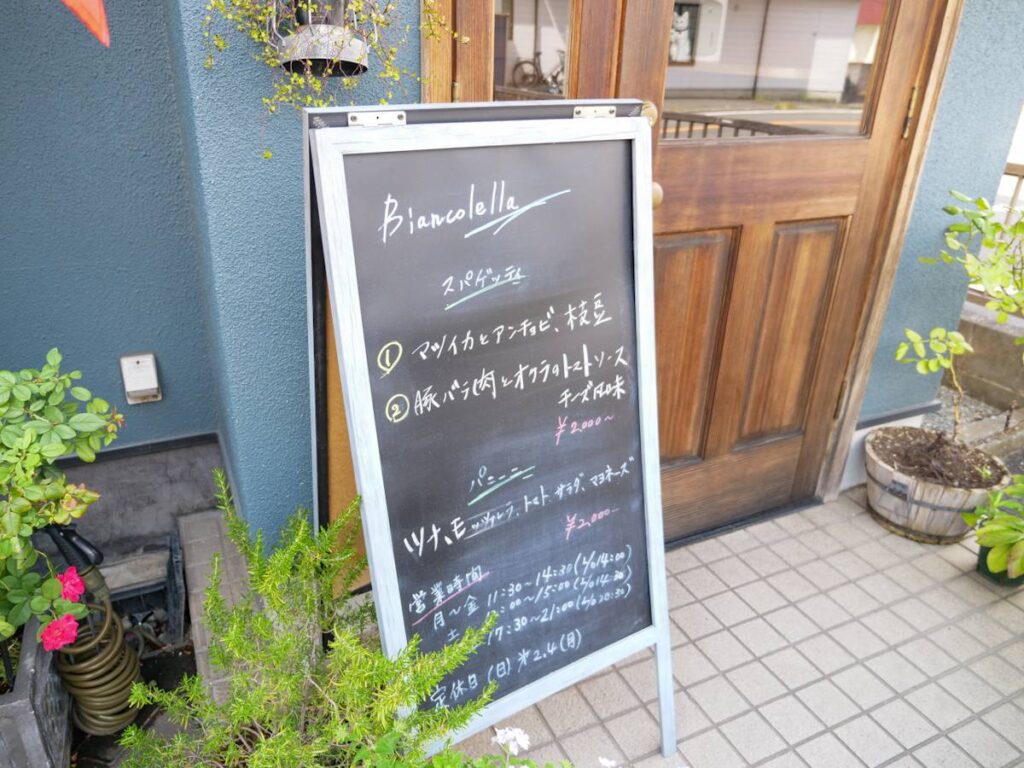 Biancolella
スパゲッティ
① マツイカとアンチョビ、枝豆
② 豚バラ肉とオクラのトマトソース
チーズ風味
¥2,000〜
パニーニ
ツナ、モッツァレラ、トマト、サラダ、マヨネーズ
¥2,000-
営業時間
月〜金 11:30〜14:30 (L/o 14:00)
土 :00〜15:00 (L/o 14:30)
17:30〜21:00 (L/o 20:30)
定休日 (日) ※2.4(月)